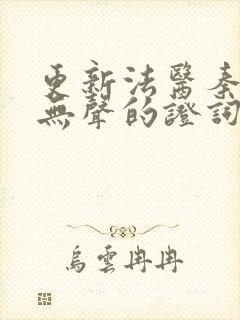 更新法醫秦
無聲的證詞
烏雲冉冉